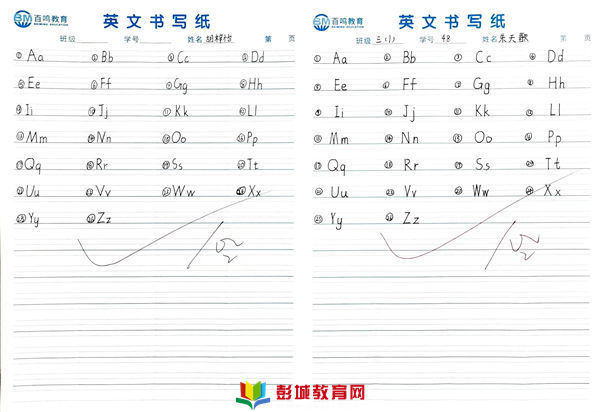 百鸣教育
英文书写纸
班级 学号 姓名 第 页
① Aa ② Bb ③ Cc ④ Dd
⑤ Ee ⑥ Ff ⑦ Gg ⑧ Hh
⑨ Ii ⑩ Jj ⑪ Kk ⑫ Ll
⑬ Mm ⑭ Nn ⑮ Oo ⑯ Pp
⑰ Qq ⑱ Rr ⑲ Ss ⑳ Tt
㉑ Uu ㉒ Vv ㉓ Ww ㉔ Xx
㉕ Yy ㉖ Zz
百鸣教育
英文书写纸
班级 三(1) 学号 48 姓名 朱天歌 第 页
① Aa ② Bb ③ Cc ④ Dd
⑤ Ee ⑥ Ff ⑦ Gg ⑧ Hh
⑨ Ii ⑩ Jj ⑪ Kk ⑫ Ll
⑬ Mm ⑭ Nn ⑮ Oo ⑯ Pp
⑰ Qq ⑱ Rr ⑲ Ss ⑳ Tt
㉑ Uu ㉒ Vv ㉓ Ww ㉔ Xx
㉕ Yy ㉖ Zz
彭城教育网